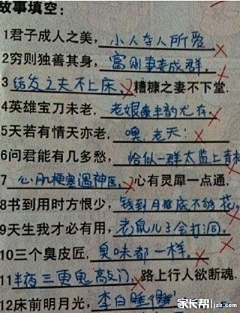 故事填空:
1君子成人之美,小人夺人所爱
2穷则独善其身,富则妻妾成群.
3结发之夫不上床,糟糠之妻不下堂.
4英雄宝刀未老,老娘风韵尤存.
5天若有情天亦老,噢,老天!
6问君能有几多愁,恰似一群太监上青楼
7心肌梗塞遇神医,心有灵犀一点通,
8书到用时方恨少,钱到月底不够花,
9天生我才必有用,老鼠儿子会打洞.
10三个臭皮匠,臭味都一样.
11半夜三更鬼敲门,路上行人欲断魂.
12床前明月光,李白睡
家长帮 jzb.com